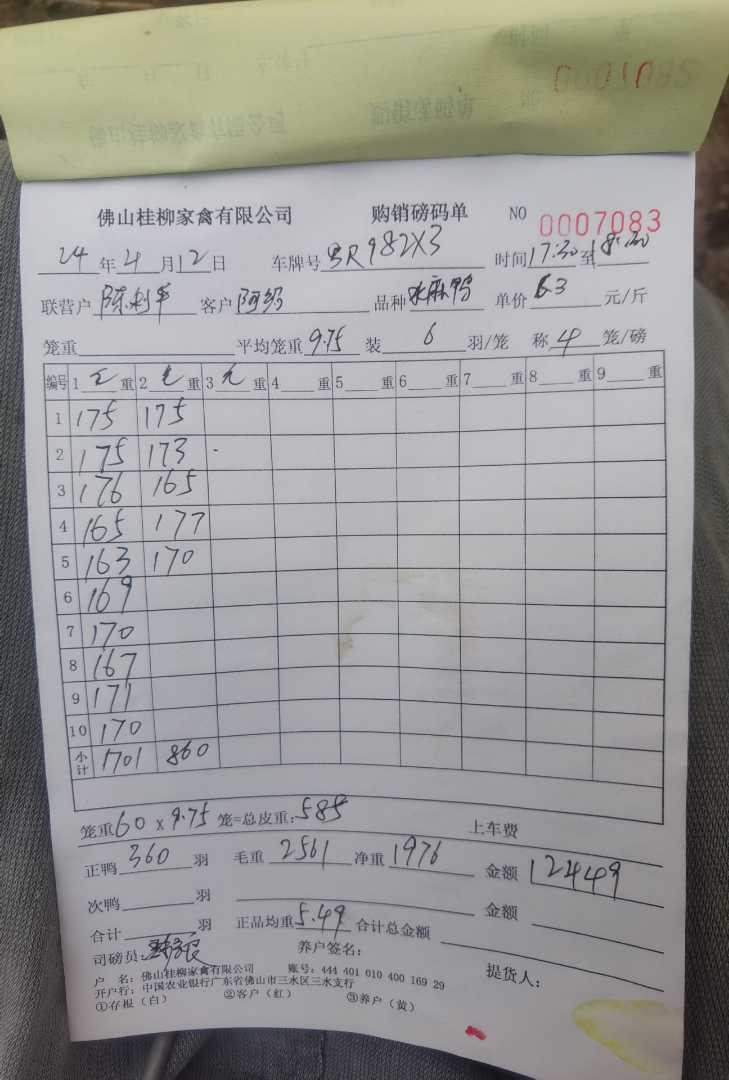 0001085
佛山桂柳家禽有限公司 购销磅码单 NO 0007083
24年4月12日 车牌号 R982X3 时间17:30至18:30
联营户 陈 客户 阿 品种 麻鸭 单价 6.3 元/斤
笼重 平均笼重 9.75 装 6 羽/笼 称 4 笼/磅
编号 1 重 2 重 3 重 4 重 5 重 6 重 7 重 8 重 9 重
1 175 175
2 175 173
3 176 165
4 165 177
5 163 170
6 169
7 170
8 167
9 171
10 170
小计 1701 860
笼重60 x 9.75 笼=总皮重: 585 上车费
正鸭 360 羽 毛重 2561 净重 1976 金额 12449
次鸭 羽 金额
合计 羽 正品均重 5.49 合计总金额
司磅员: 养户签名: 提货人:
户 名: 佛山桂柳家禽有限公司 账号: 444 401 010 400 169 29
开户行: 中国农业银行广东省佛山市三水区三水支行
①存根（白） ②客户（红） ③养户（黄）